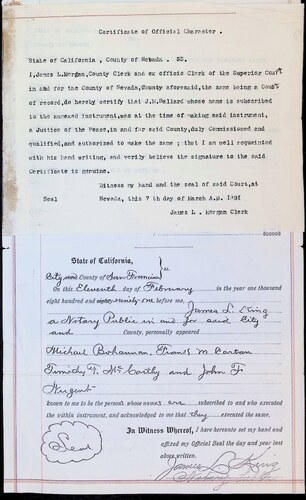 Certificate of Official Character .
State of California , County of Nevada . SS.
I,James L.Morgan,County Clerk and ex officio Clerk of the Superior Court
in and for the County of Nevada,County aforesaid,the same being a Court
of record,do hereby certify that J.M.Ballard whose name is subscribed
to the annexed instrument,was at the time of making said instrument,
a Justice of the Peace,in and for said County,duly Commissioned and
qualified,and authorized to make the same ; that I am well acquainted
with his hand writing, and verily believe the signature to the said
Certificate is genuine.
Witness my hand and the seal of said Court,at
Seal Nevada, this 7 th day of March A.D. 1891
James L . Morgan Clerk
State of California,
City and County of San Francisco } ss
On this Eleventh day of February in the year one thousand
eight hundred and ninety-one before me, James L. King
a Notary Public in and for said City
and County, personally appeared
Michael Bohannan, Francis M. Carson
Timothy F. McCarthy and John F
Nugent
known to me to be the persons whose names are subscribed to and who executed
the within instrument, and acknowledged to me that they executed the same.
In Witness Whereof, I have hereunto set my hand and
affixed my Official Seal the day and year last
above written.
Seal
James L. King
Notary Public